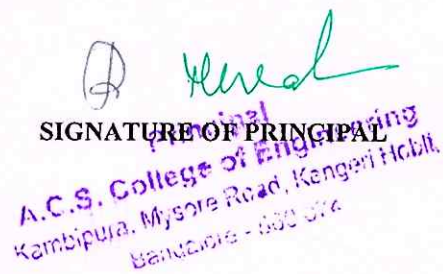 SIGNATURE OF PRINCIPAL
Principal
A.C.S. College of Engineering
Kambipura, Mysore Road, Kengeri Hobli,
Bangalore - 560 074